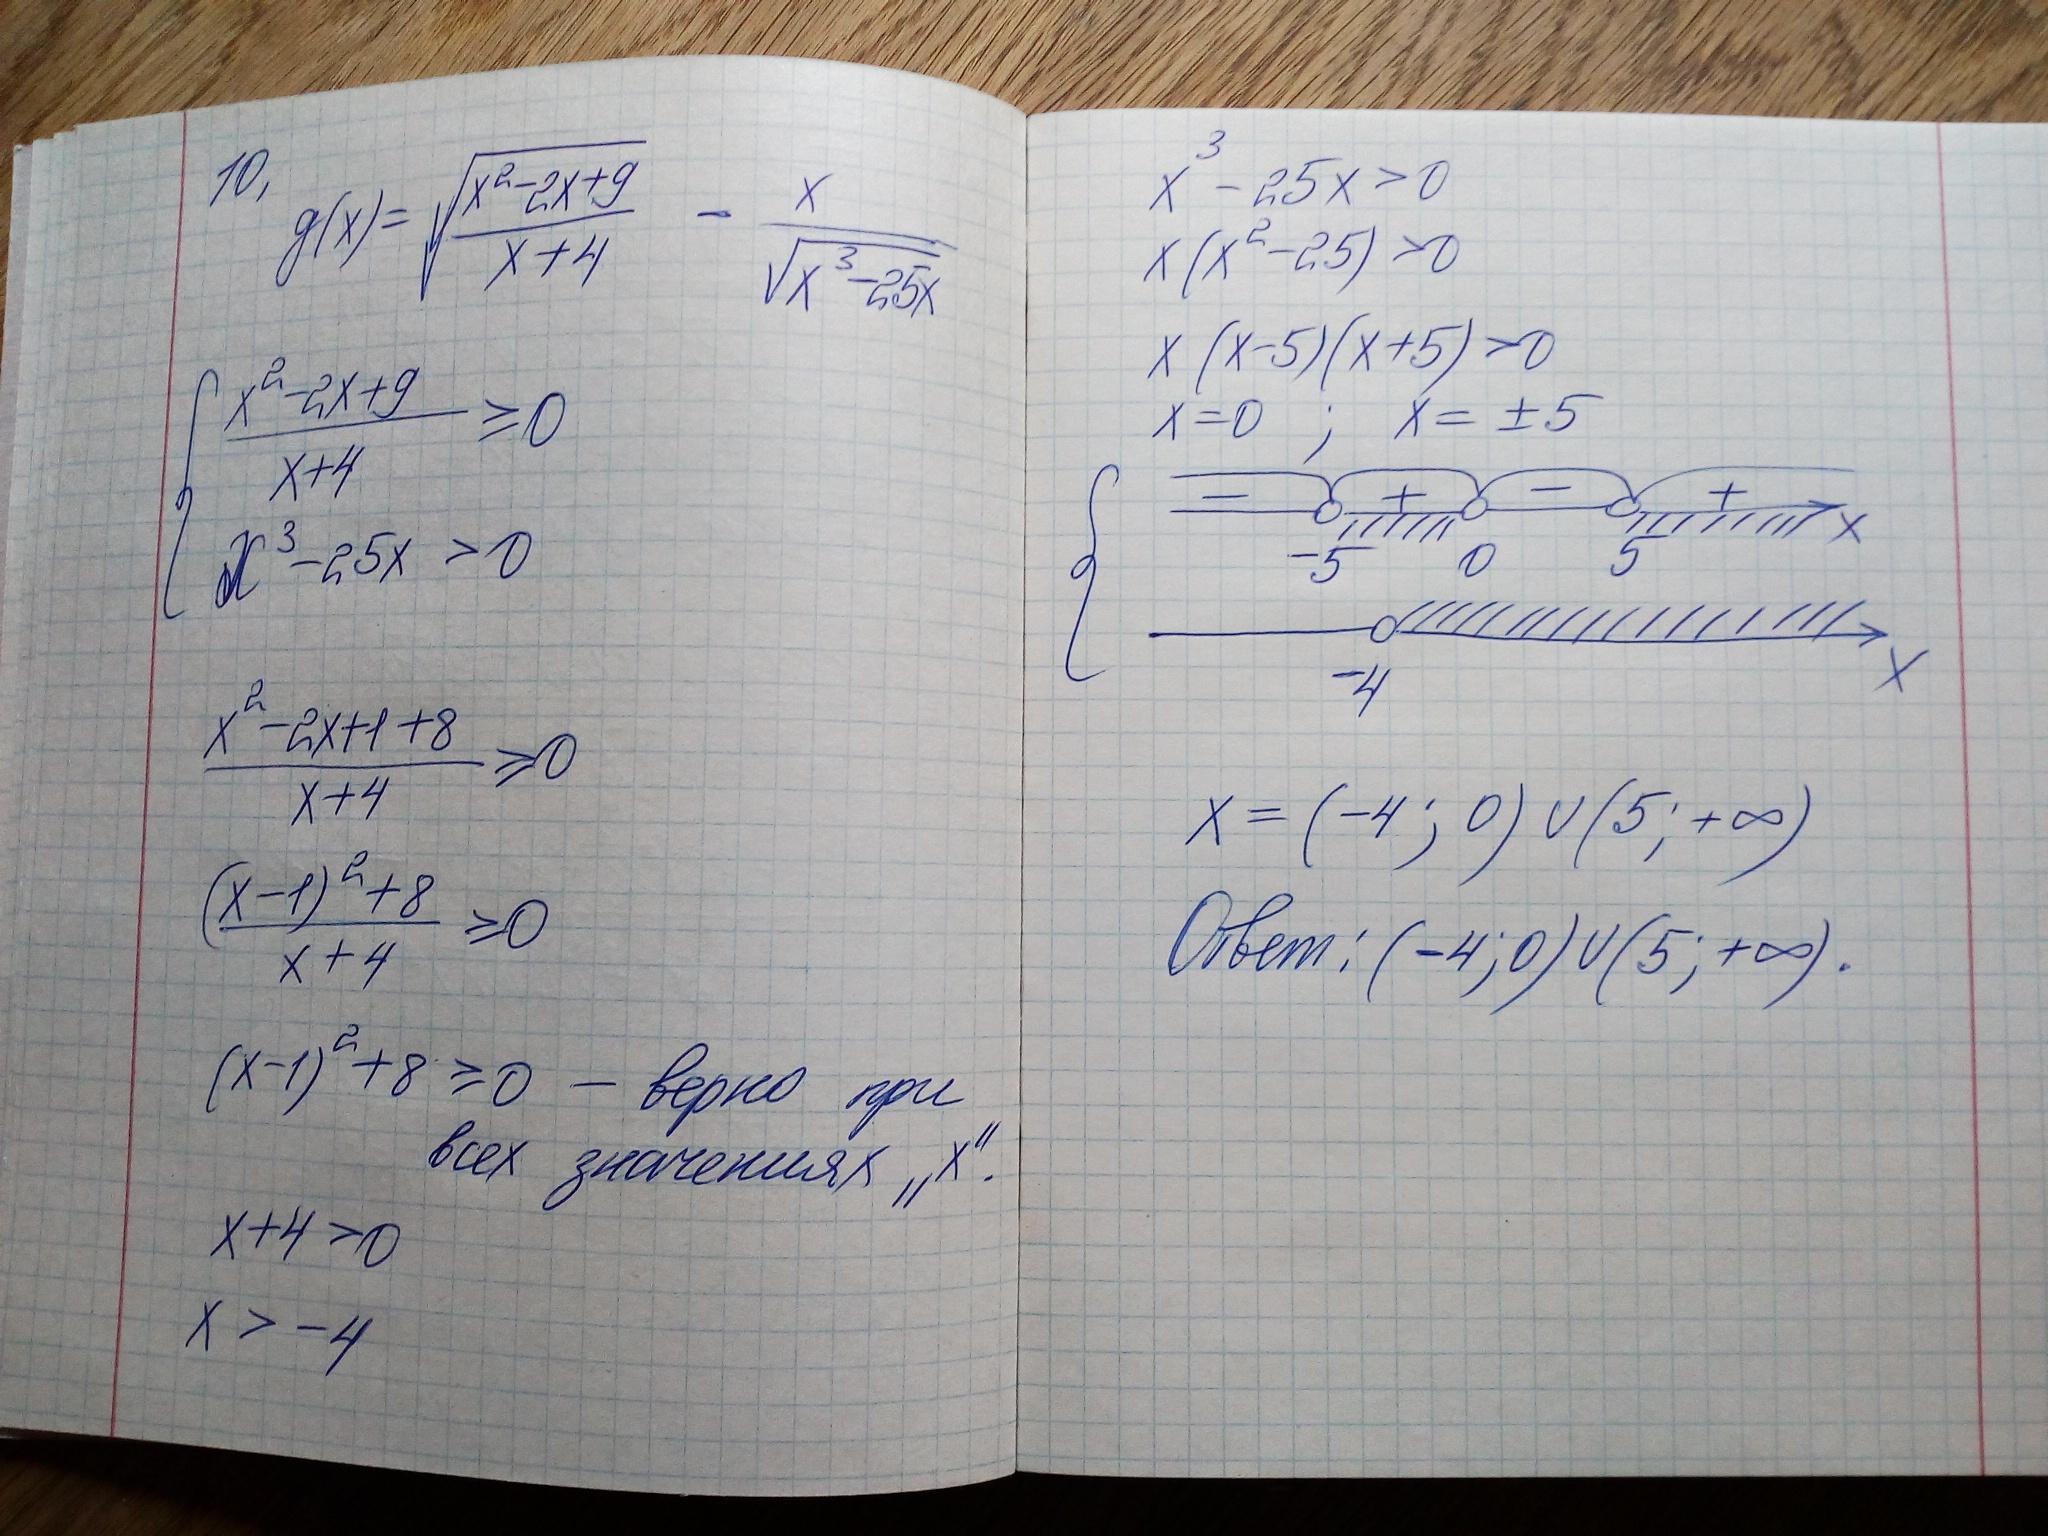 10,
g(x) = √((x²-2x+9)/(x+4)) - x/√(x³-25x)
{ (x²-2x+9)/(x+4) ≥ 0
x³-25x > 0
(x²-2x+1+8)/(x+4) ≥ 0
((x-1)²+8)/(x+4) ≥ 0
(x-1)²+8 ≥ 0 – верно при
всех значениях „x".
x+4 > 0
x > -4
x³-25x > 0
x(x²-25) > 0
x(x-5)(x+5) > 0
x=0 ; x= ±5
− + − +
-5 0 5 x
-4 x
x = (-4; 0) ∪ (5; +∞)
Ответ: (-4; 0) ∪ (5; +∞).